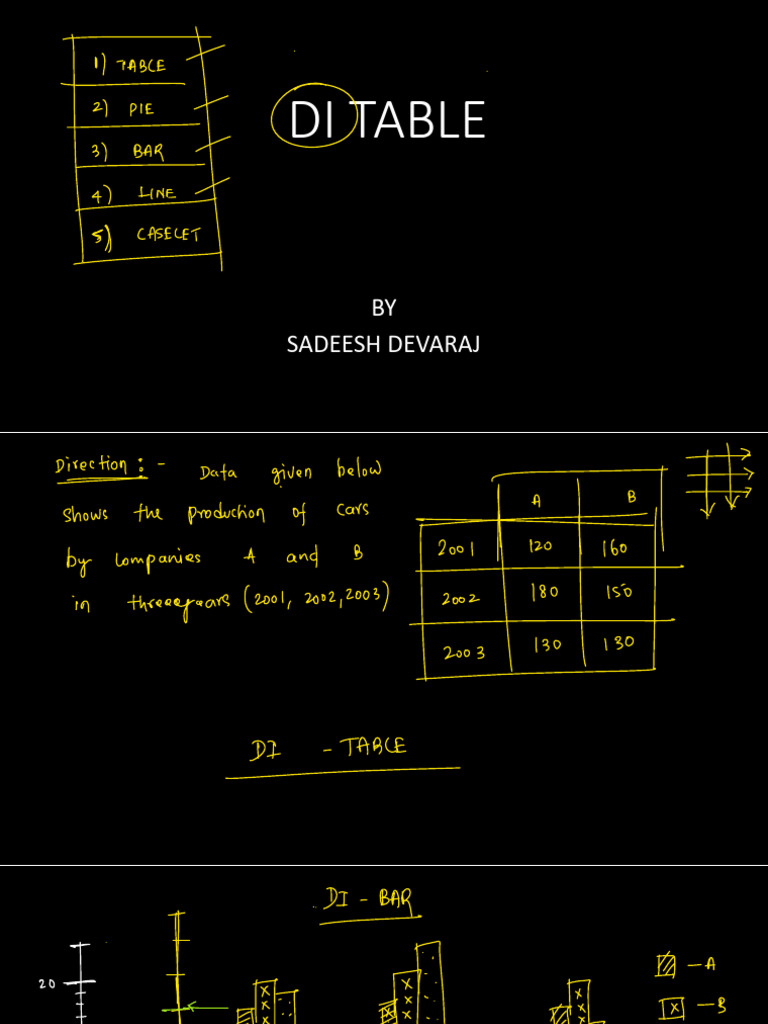 1) TABLE
2) PIE
3) BAR
4) LINE
5) CASELET
DI TABLE
BY
SADEESH DEVARAJ
Direction : - Data given below
shows the production of cars
by Companies A and B
in threeeyears (2001, 2002, 2003)
A B
2001 120 160
2002 180 150
2003 130 130
DI - TABLE
DI - BAR
20
x x x
x x x
x
- A
x - B